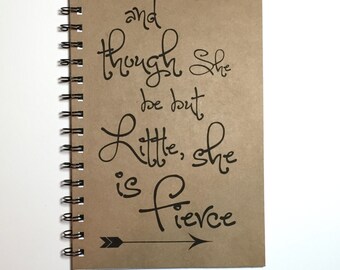 and
though She
be but
Little, she
is
fierce